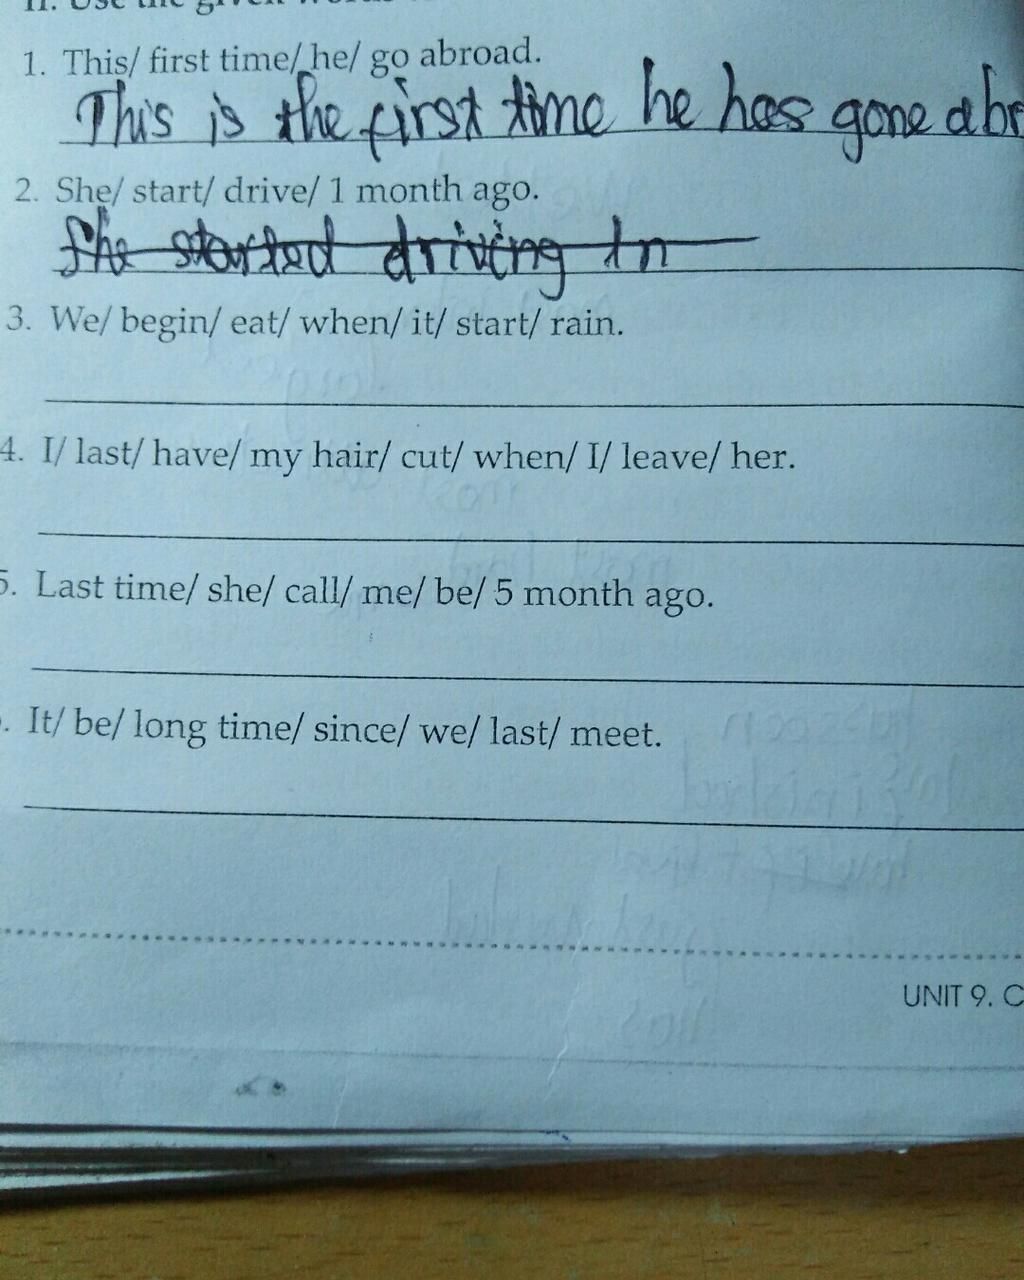 II. Use the given words
1. This/ first time/ he/ go abroad.
This is the first time he has gone abr
2. She/ start/ drive/ 1 month ago.
She started driving in
3. We/ begin/ eat/ when/ it/ start/ rain.
4. I/ last/ have/ my hair/ cut/ when/ I/ leave/ her.
5. Last time/ she/ call/ me/ be/ 5 month ago.
. It/ be/ long time/ since/ we/ last/ meet.
UNIT 9. C